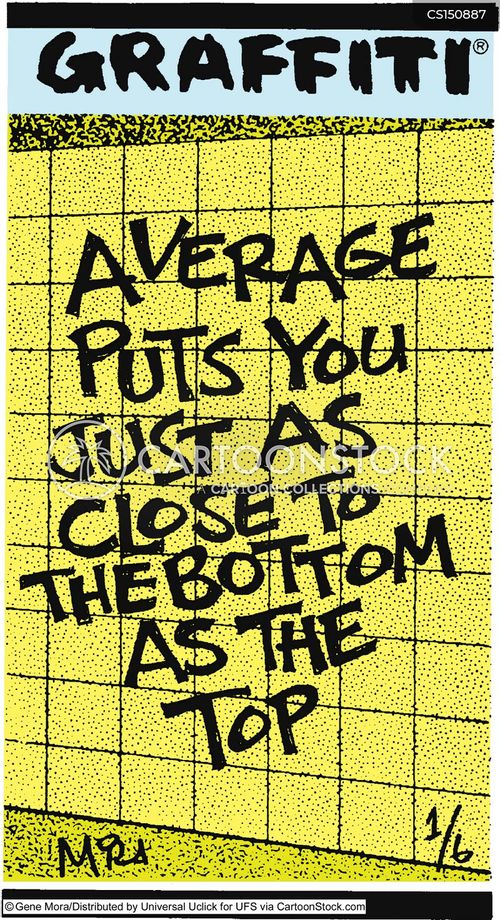 CS150887
GRAFFITI®
AVERAGE
PUTS YOU
JUST AS
CARTOONSTOCK
A CARTOON COLLECTIONS
CLOSE TO
THE BOTTOM
AS THE
TOP
1/6
© Gene Mora/Distributed by Universal Uclick for UFS via CartoonStock.com